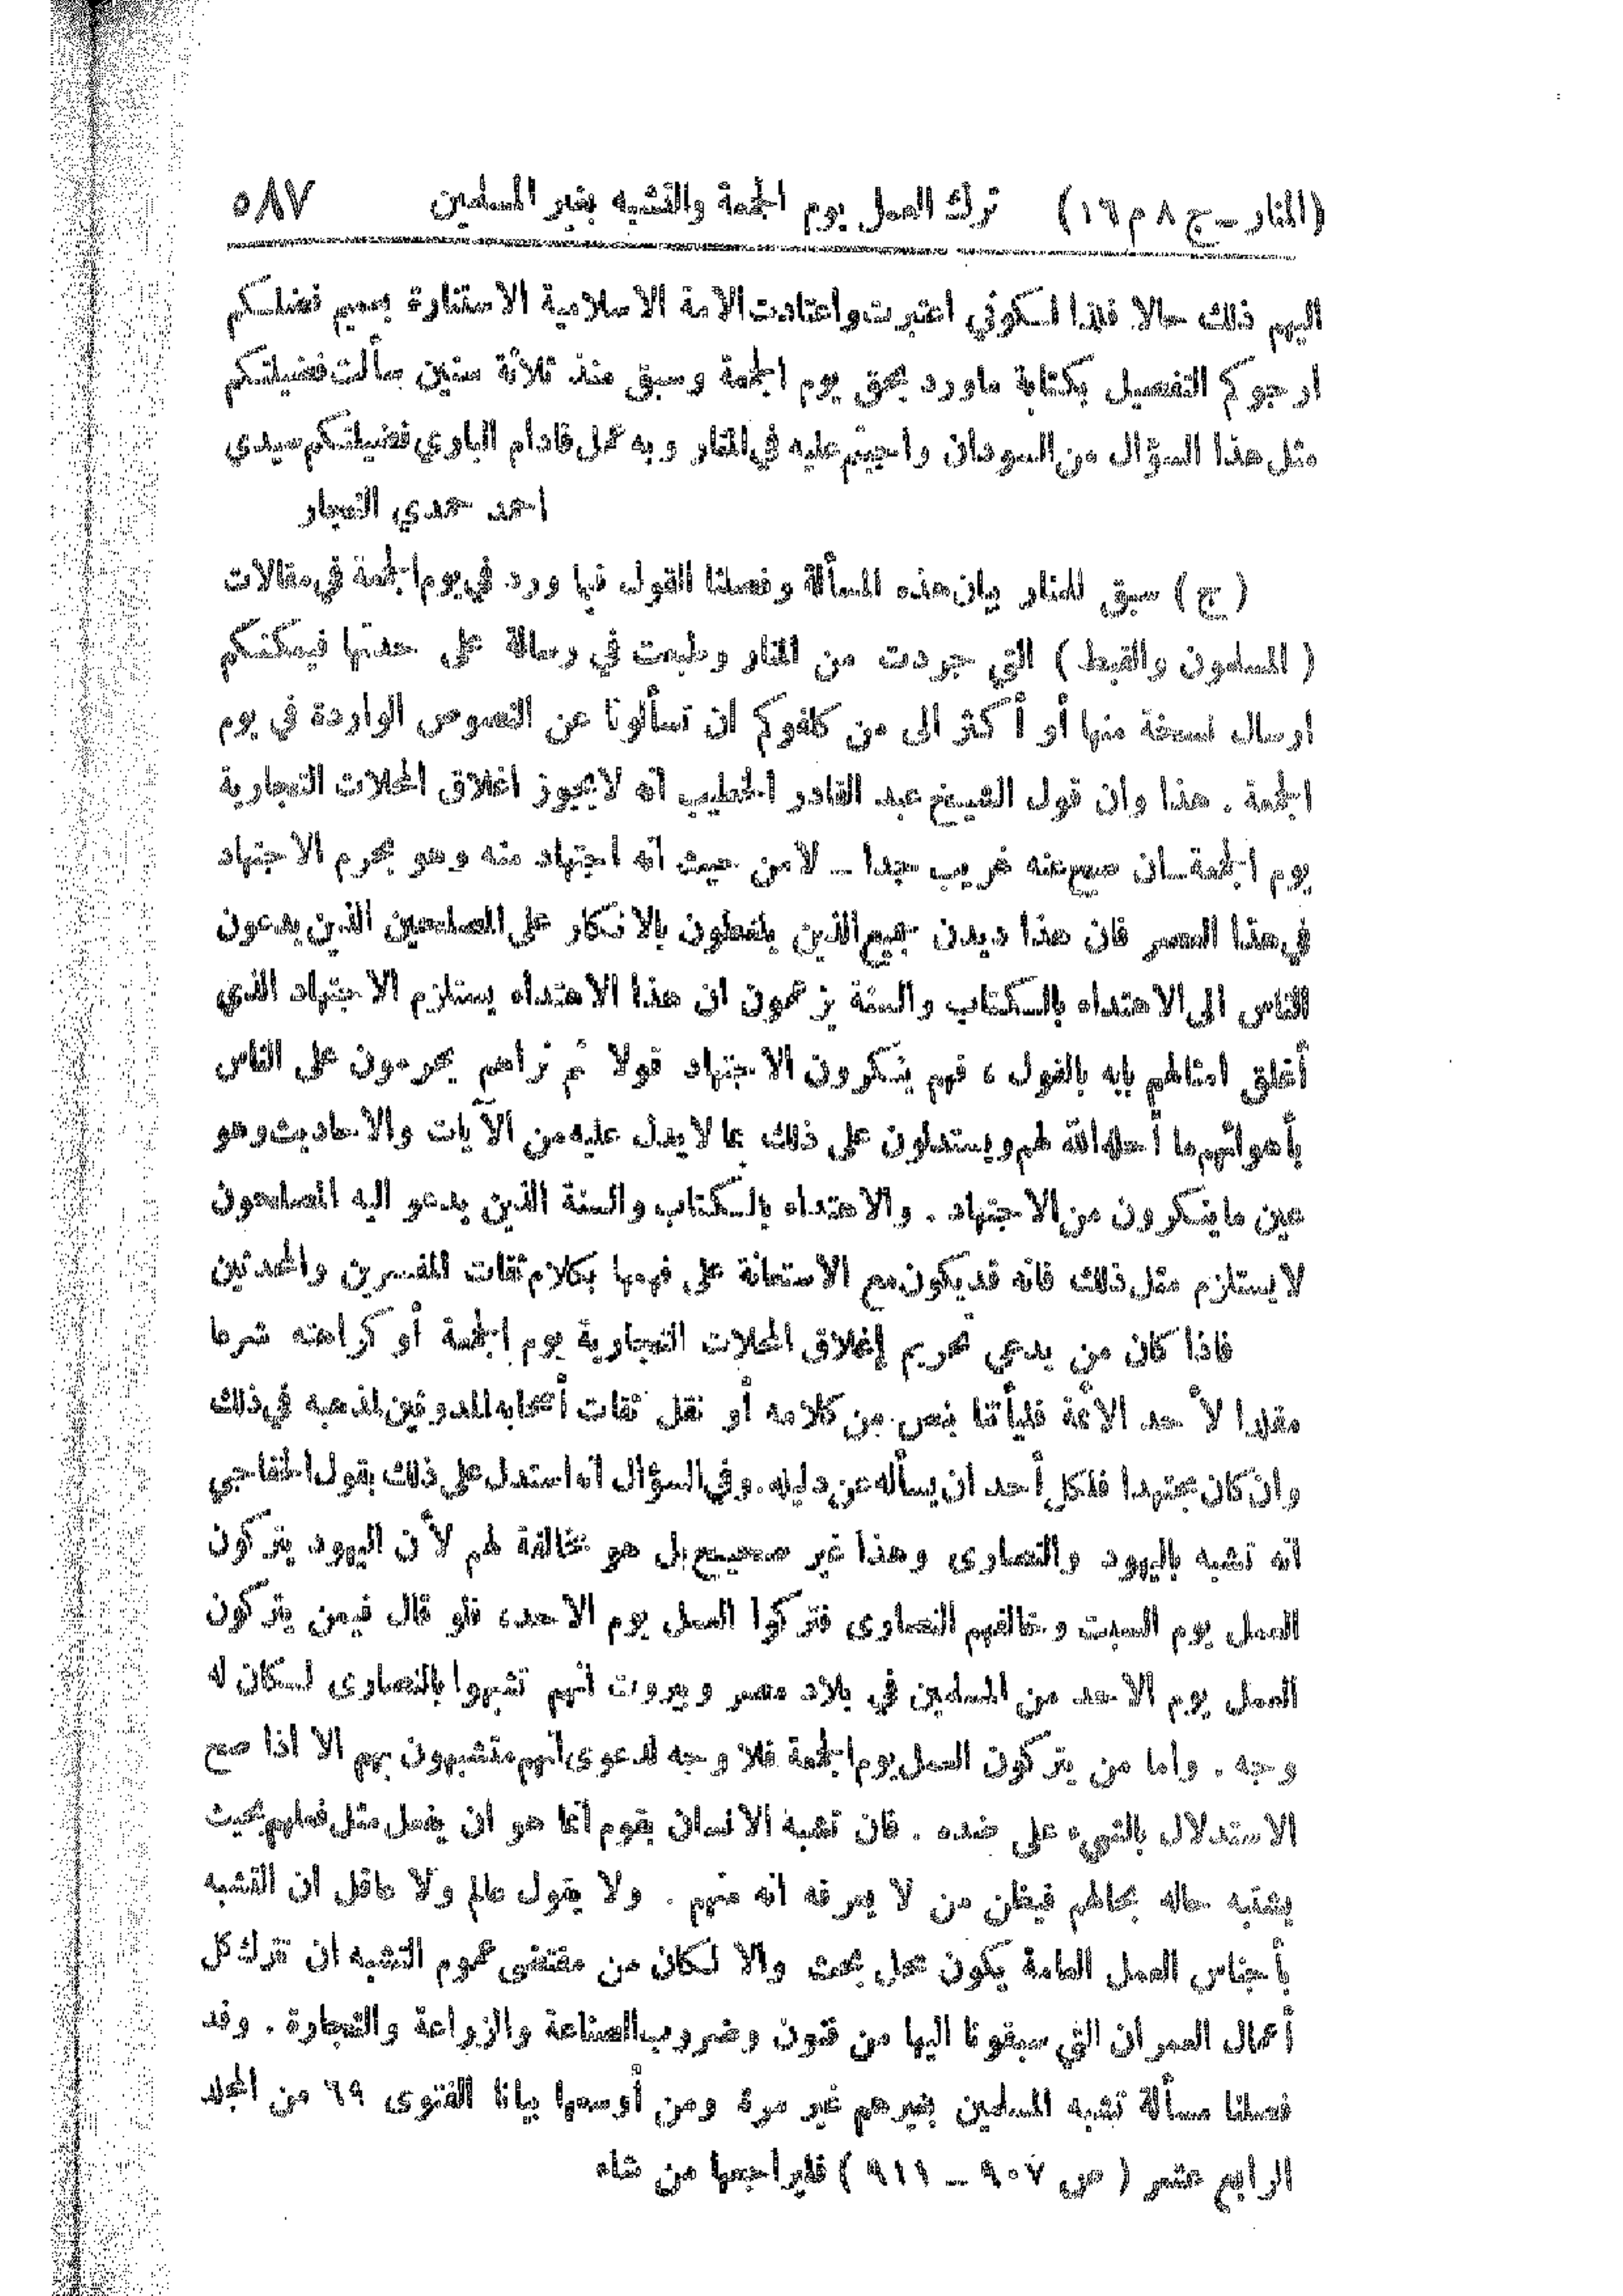 (المنار – ج ٨ م ١٦) ترك العمل يوم الجمعة والتشبه بغير المسلمين ٥٨٧
اليهم ذلك حالا فلذا لكوني اعتبرت واعتادت الامة الاسلامية الاستنارة بعميم فضلكم
ارجوكم التفصيل بكتابة ماورد بحق يوم الجمعة وسبق منذ ثلاثة سنين سألت فضيلتكم
مثل هذا السؤال من السودان واجبتم عليه في المنار وبه عمل فادام الباري فضيلتكم سيدي
احمد حمدي النجار
(ج) سبق للمنار بيان هذه المسألة وفصلنا القول فيما ورد في يوم الجمعة في مقالات
(المسلمون والقبط) التي جردت من المنار وطبعت في رسالة على حدتها فيمكنكم
ارسال نسخة منها أو أكثر الى من كلفوكم ان تسألونا عن النصوص الواردة في يوم
الجمعة . هذا وان قول الشيخ عبد القادر الخطيب انه لا يجوز اغلاق المحلات التجارية
يوم الجمعة ــ ان صح عنه غريب جدا – لا من حيث انه اجتهاد منه وهو يحرم الاجتهاد
في هذا العصر فان هذا ديدن جميع الذين يلغطون بالانكار على المصلحين الذين يدعون
الناس الى الاهتداء بالكتاب والسنة يزعمون ان هذا الاهتداء يستلزم الاجتهاد الذي
أغلق امثالهم بابه بالقول ، فهم ينكرون الاجتهاد قولا ثم نراهم يحرمون على الناس
بأهوائهم ما أحله الله لهم ويستدلون على ذلك بما لا يدل عليه من الآيات والاحاديث وهو
عين ما ينكرون من الاجتهاد . والاهتداء بالكتاب والسنة الذين يدعو اليه المصلحون
لا يستلزم مثل ذلك فانه قد يكون مع الاستعانة على فهمها بكلام ثقات المفسرين والمحدثين
فاذا كان من يدعي تحريم إغلاق المحلات التجارية يوم الجمعة أو كراهته شرعا
مقلدا لأحد الأئمة فليأتنا بنص من كلامه أو نقل ثقات أصحابه المدونين لمذهبه في ذلك
وان كان مجتهدا فلكل أحد ان يسأله عن دليله . وفي السؤال انه استدل على ذلك بقول الخفاجي
انه تشبه باليهود والنصارى وهذا غير صحيح بل هو مخالفة لهم لأن اليهود يتركون
العمل يوم السبت وخالفهم النصارى فتركوا العمل يوم الاحد، فلو قال فيمن يتركون
العمل يوم الاحد من المسلمين في بلاد مصر وبيروت انهم تشبهوا بالنصارى لكان له
وجه . واما من يتركون العمل يوم الجمعة فلا وجه لدعوى انهم متشبهون بهم الا اذا صح
الاستدلال بالشيء على ضده . فان تشبه الانسان بقوم انما هو ان يفعل مثل فعلهم بحيث
يشتبه حاله بحالهم فيظن من لا يعرفه انه منهم . ولا يقول عالم ولا عاقل ان التشبه
بأجناس العمل العامة يكون محل بحث والا لكان من مقتضى عموم التشبه ان نترك كل
أعمال العمران التي سبقونا اليها من فنون وضروب الصناعة والزراعة والتجارة . وقد
فصلنا مسألة تشبه المسلمين بغيرهم غير مرة ومن أوسعها بيانا الفتوى ٦٩ من المجلد
الرابع عشر (ص ٩٠٧ – ٩١١) فليراجعها من شاء